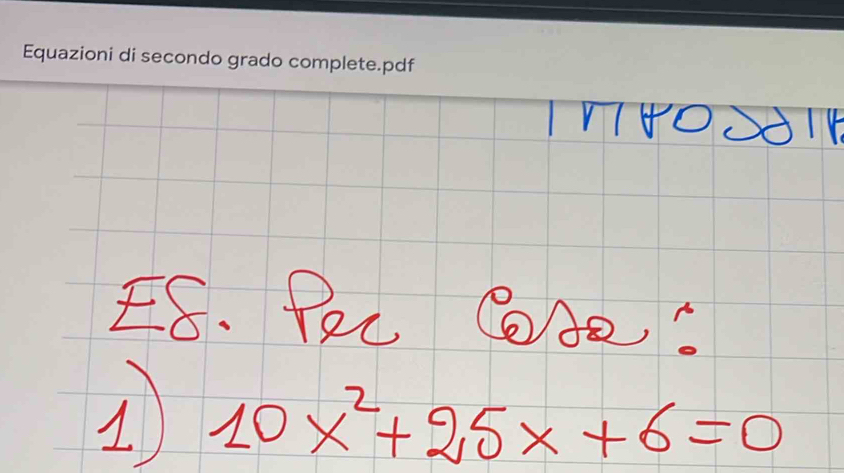 Equazioni di secondo grado complete.pdf
ES. Per Casa:
1) 10x²+25x+6=0